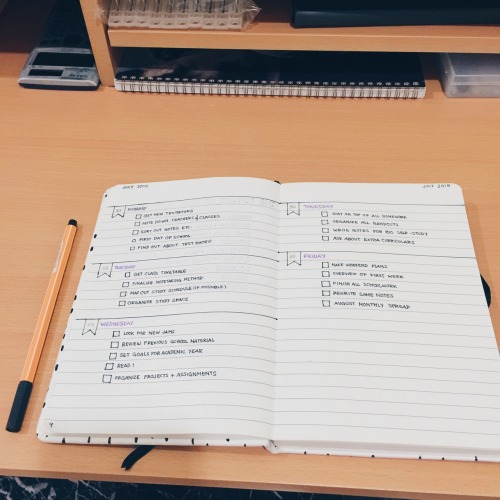 JULY 2018
MONDAY
GET NEW TEXTBOOKS
NOTE DOWN TEACHERS & CLASSES
SORT OUT NOTES ETC.
FIRST DAY OF SCHOOL
FIND OUT ABOUT TEST DATES
TUESDAY
GET CLASS TIMETABLE
FINALISE NOTETAKING METHOD
MAP OUT STUDY SCHEDULE (IF POSSIBLE)
ORGANISE STUDY SPACE
WEDNESDAY
LOOK FOR NEW JAMS
REVIEW PREVIOUS SCHOOL MATERIAL
SET GOALS FOR ACADEMIC YEAR
READ!
ORGANIZE PROJECTS + ASSIGNMENTS
JULY 2018
THURSDAY
STAY ON TOP OF ALL HOMEWORK
ORGANISE ALL HANDOUTS
WRITE NOTES FOR BIO SELF-STUDY
ASK ABOUT EXTRA CURRICULARS
FRIDAY
MAKE WEEKEND PLANS
OVERVIEW OF FIRST WEEK
FINISH ALL SCHOOLWORK
REWRITE SOME NOTES
AUGUST MONTHLY SPREAD